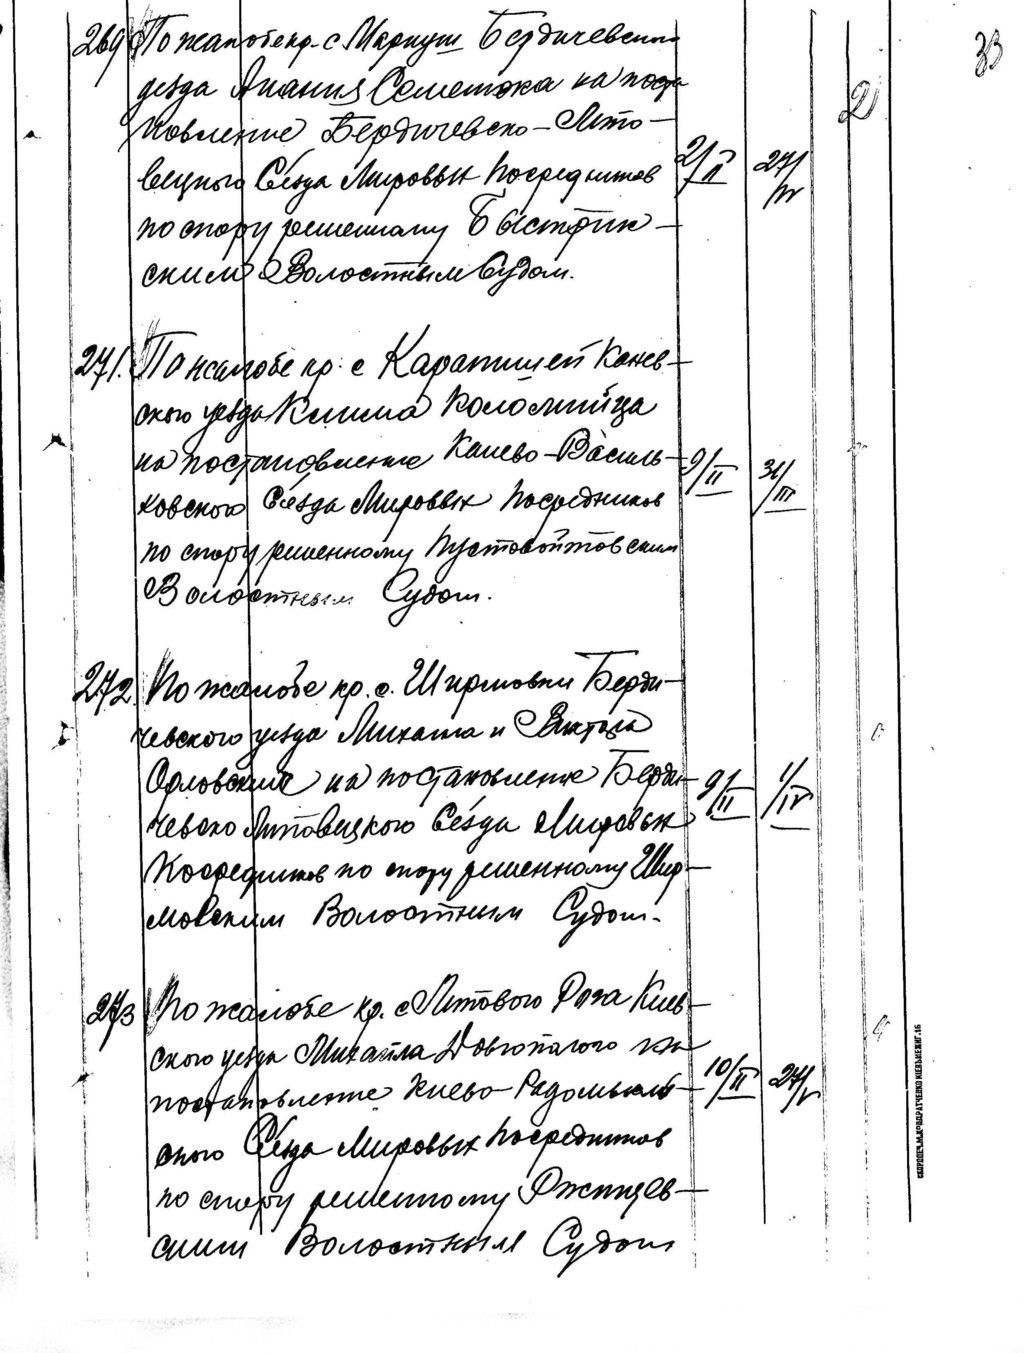 33
2
269 По жалобе кр. с Маркуш Бердичевского
уезда Анания Семенюка на поста
новление Бердичевско-Липо-
вецкого Съезда Мировых Посредников 2/II 27/IV
по спору решенному Быстрик-
ским Волостным Судом.
271. По жалобе кр. с Карапышей Канев-
ского уезда Клима Коломийца
на постановление Канево-Василь-
ковского Съезда Мировых Посредников 9/II 31/III
по спору решенному Пустовойтовским
Волостным Судом.
272. По жалобе кр. с. Ширмовки Берди-
чевского уезда Михаила и Виктора
Орловских на постановление Берди-
чевско Липовецкого Съезда Мировых 9/II 1/IV
Посредников по спору решенному Шир-
мовским Волостным Судом.
273 По жалобе кр. с Липового Рога Киев-
ского уезда Михаила Довгопалого на
постановление Киево-Радомысль- 10/II 27/V
ского Съезда Мировых Посредников
по спору решенному Ржищев-
ским Волостным Судом